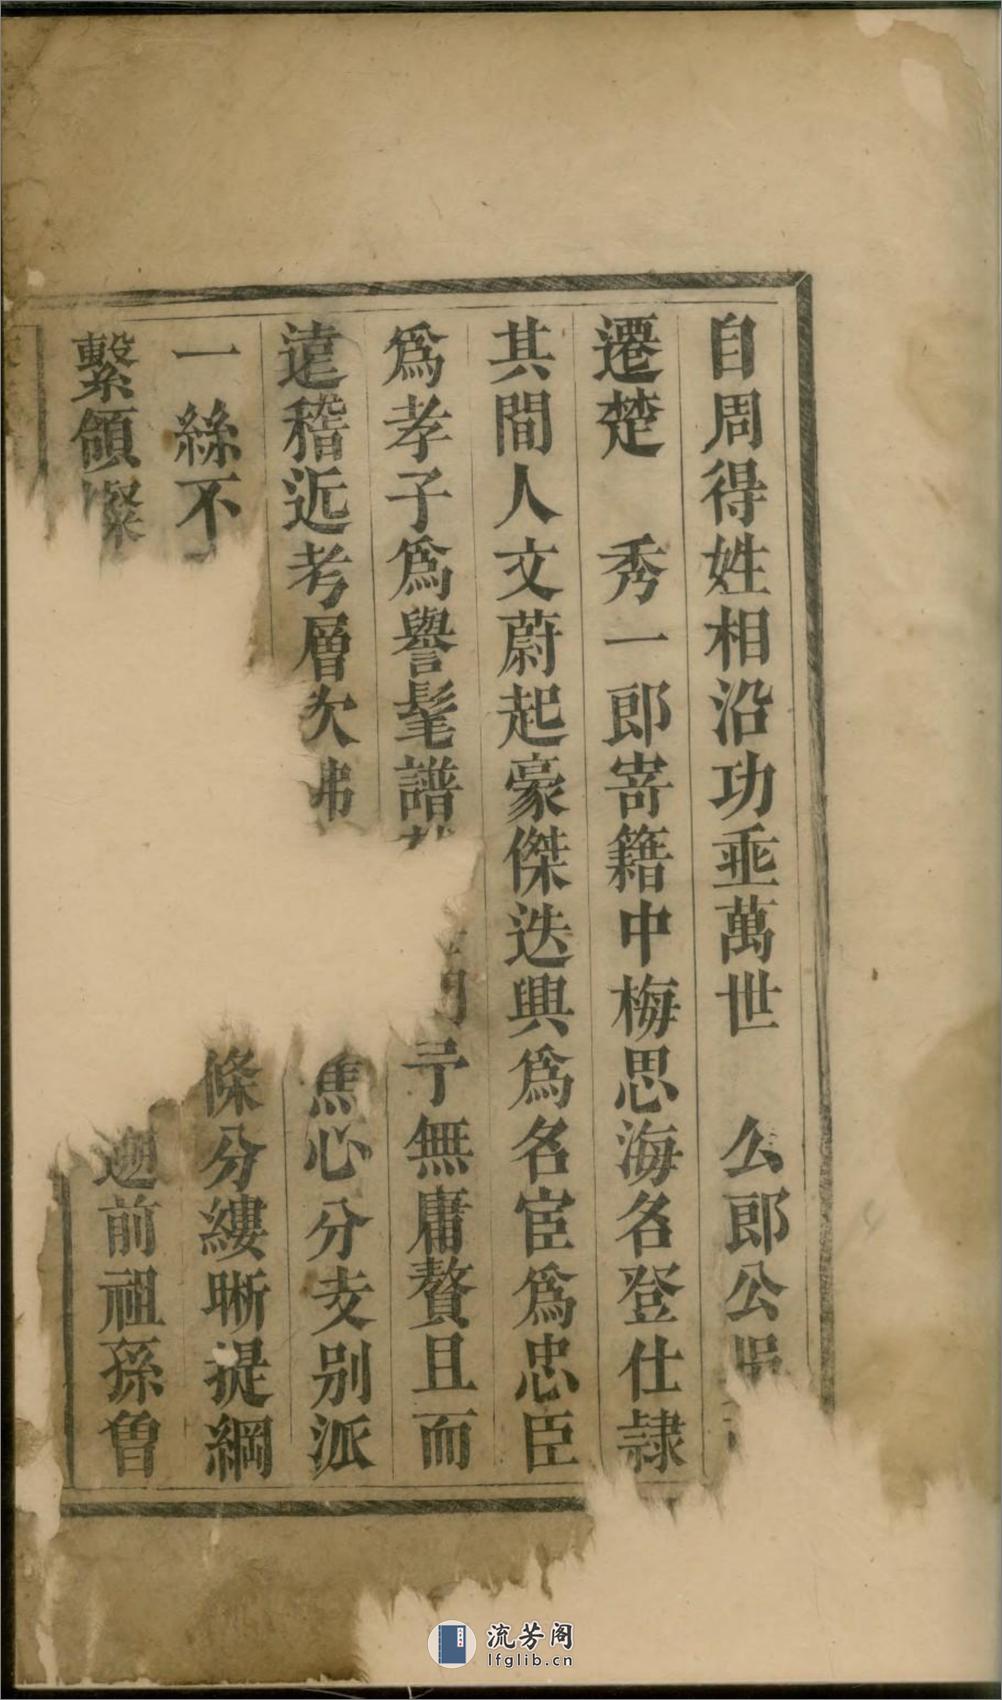 自周得姓相沿功垂萬世　公郎公
遷楚　秀一郎寄籍中梅思海名登仕隷
其間人文蔚起豪傑迭興爲名宦爲忠臣
爲孝子爲譽髦譜 亍無庸贅且而
遠稽近考層次 焦心分支别派
一絲不 條分縷晰提綱
繫領 迎前祖孫曾
流芳阁
lfglib.cn